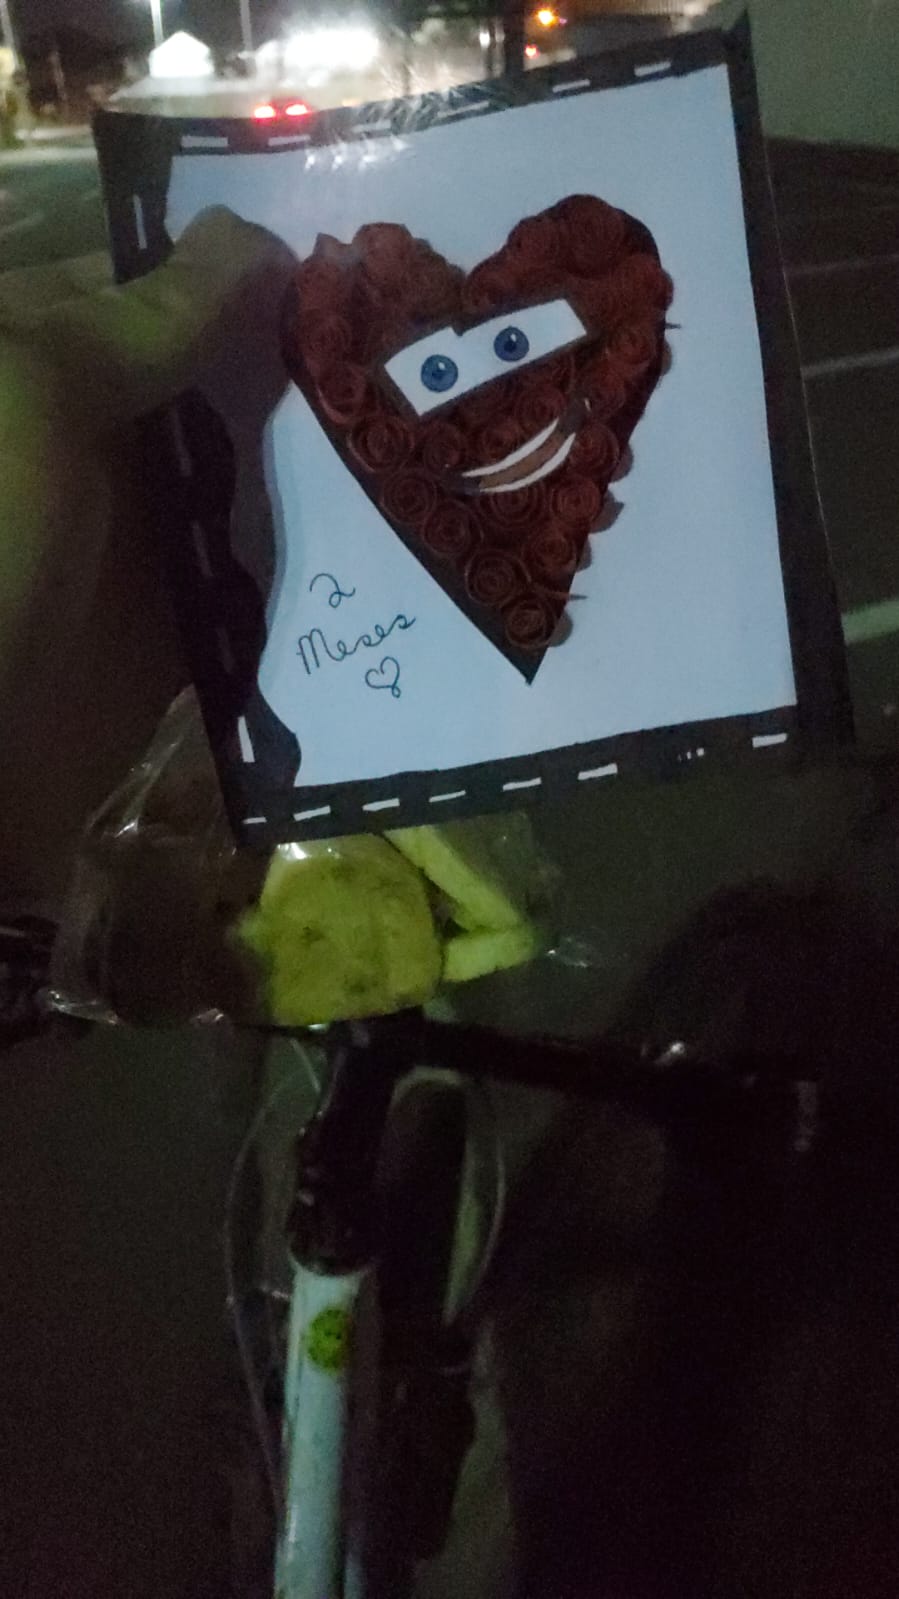 2
Meses